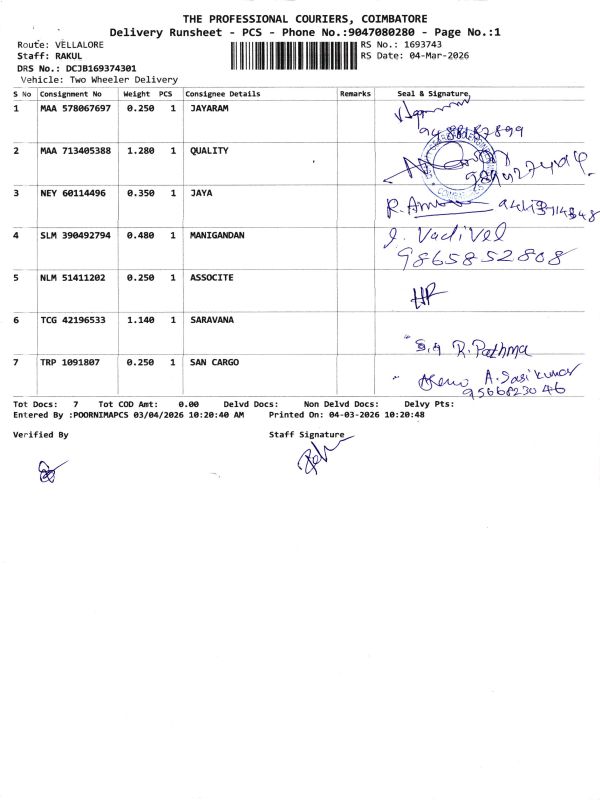 THE PROFESSIONAL COURIERS, COIMBATORE
Delivery Runsheet - PCS - Phone No.:9047080280 - Page No.:1
Route: VELLALORE RS No.: 1693743
Staff: RAKUL RS Date: 04-Mar-2026
DRS No.: DCJB169374301
Vehicle: Two Wheeler Delivery
S No Consignment No Weight PCS Consignee Details Remarks Seal & Signature
1 MAA 578067697 0.250 1 JAYARAM
2 MAA 713405388 1.280 1 QUALITY
3 NEY 60114496 0.350 1 JAYA
4 SLM 390492794 0.480 1 MANIGANDAN J. Vadivel
9865852808
5 NLM 51411202 0.250 1 ASSOCITE
6 TCG 42196533 1.140 1 SARAVANA R. Pathma
7 TRP 1091807 0.250 1 SAN CARGO A. Sasikumar
9566823046
Tot Docs: 7 Tot COD Amt: 0.00 Delvd Docs: Non Delvd Docs: Delvy Pts:
Entered By :POORNIMAPCS 03/04/2026 10:20:40 AM Printed On: 04-03-2026 10:20:48
Verified By Staff Signature